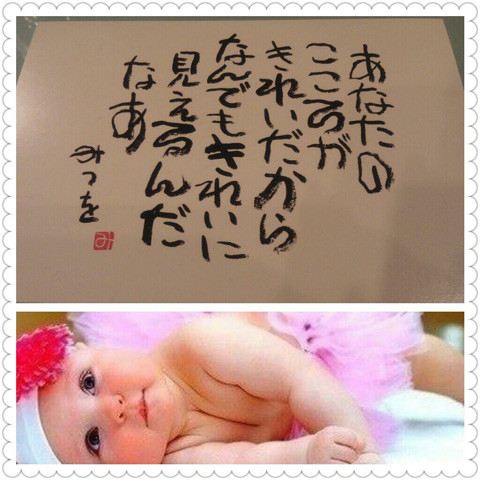 あなたの
こころが
きれいだから
なんでもきれいに
見えるんだ
なあ
みつを
み